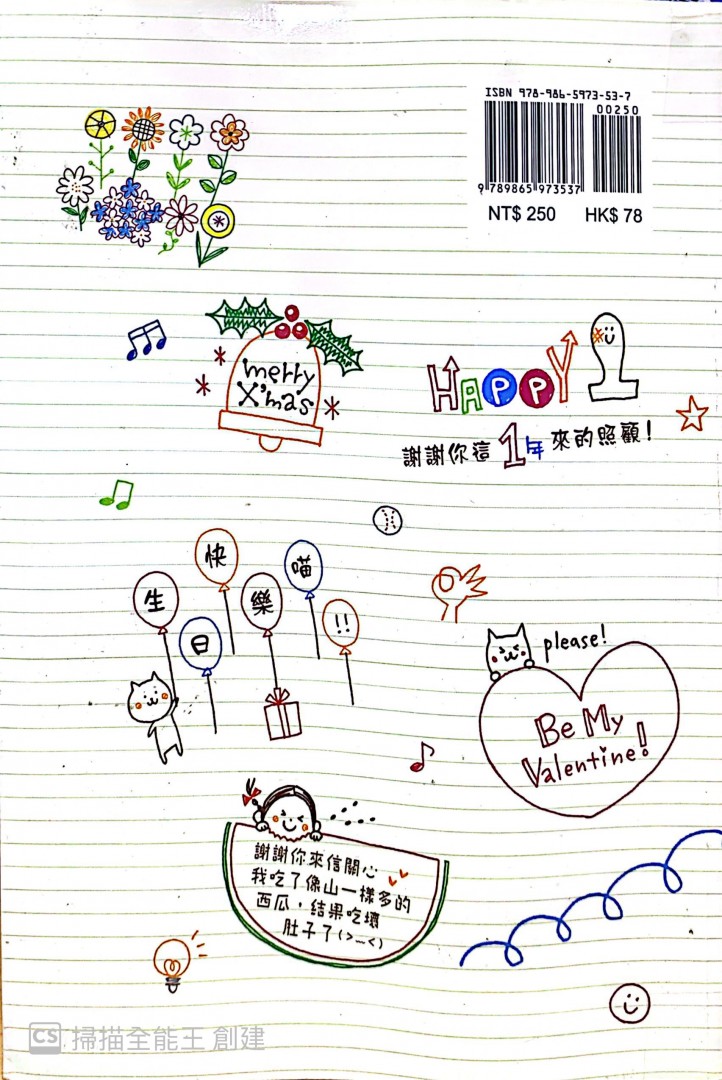 ISBN 978-986-5973-53-7
00250
9 789865 973537
NT$ 250 HK$ 78
merry
X'mas
HAPPY 1
謝謝你這1年來的照顧!
生日快樂喵!!
please!
Be My
Valentine!
謝謝你來信關心
我吃了像山一樣多的
西瓜，結果吃壞
肚子了(>_<)
CS 掃描全能王 創建